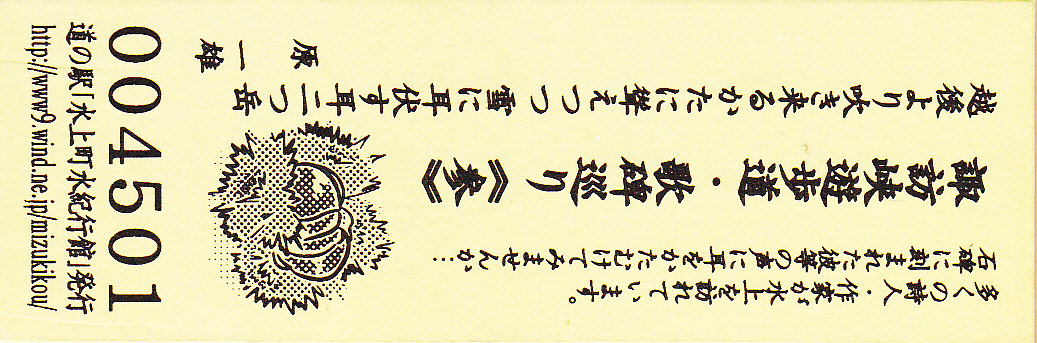 多くの詩人・作家が水上を訪れています。
石碑に刻まれた彼等の声に耳をかたむけてみませんか…
諏訪峡遊歩道・歌碑巡り《参》
越後より吹き来るかたに聳えつつ 雪に耳伏す耳二つ岳
原 一雄
004501
道の駅「水上町水紀行館」発行
http://www9.wind.ne.jp/mizukikou/